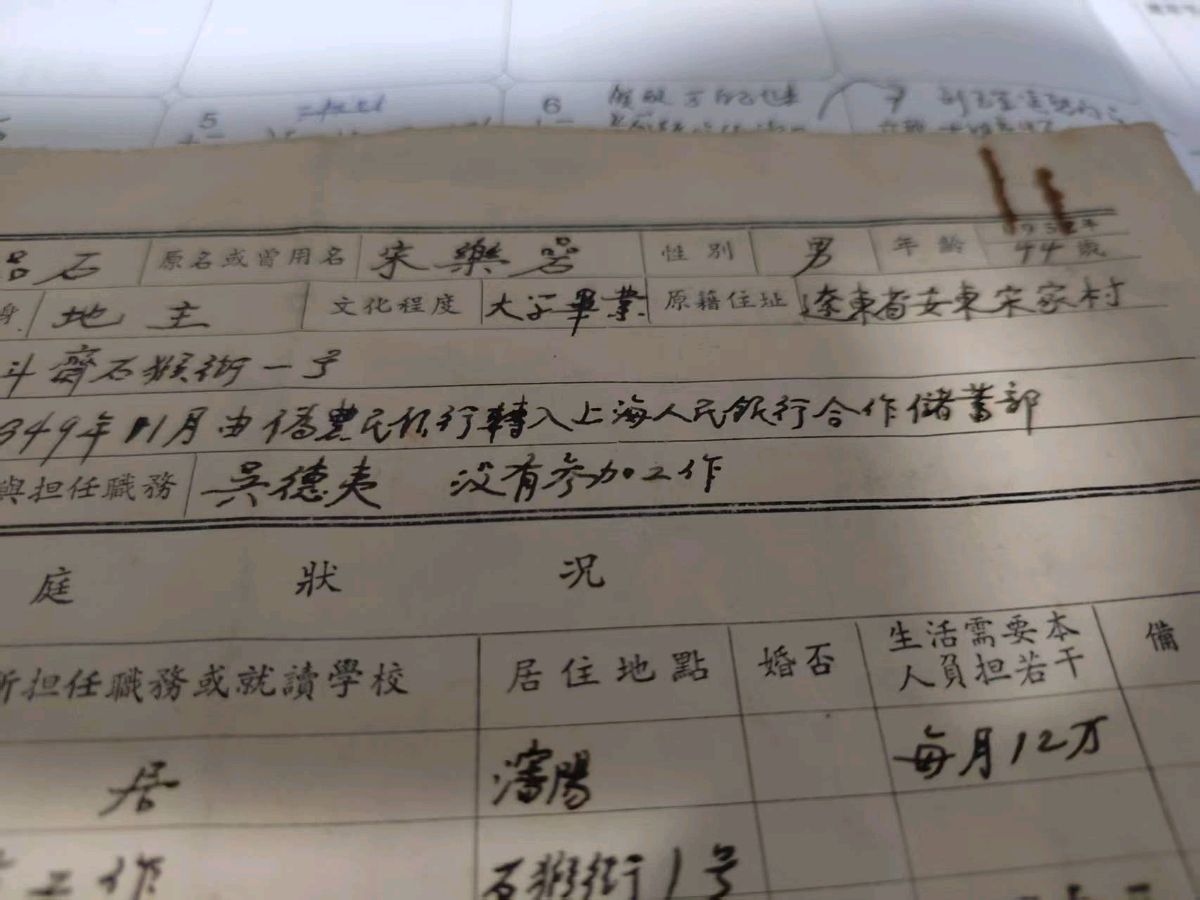 5
6
7
1952年
石 原名或曾用名 宋樂岩 性别 男 年齡 44歲
身 地主 文化程度 大学畢業 原籍住址 遼東省安東宋家村
斗齊石猴街一号
949年11月由偽農民銀行轉入上海人民銀行合作儲蓄部
與担任職務 吳德夷 没有参加工作
庭狀况
所担任職務或就讀學校 居住地點 婚否 生活需要本人負担若干 備
居 瀋陽 每月12万
工作 石猴街1號